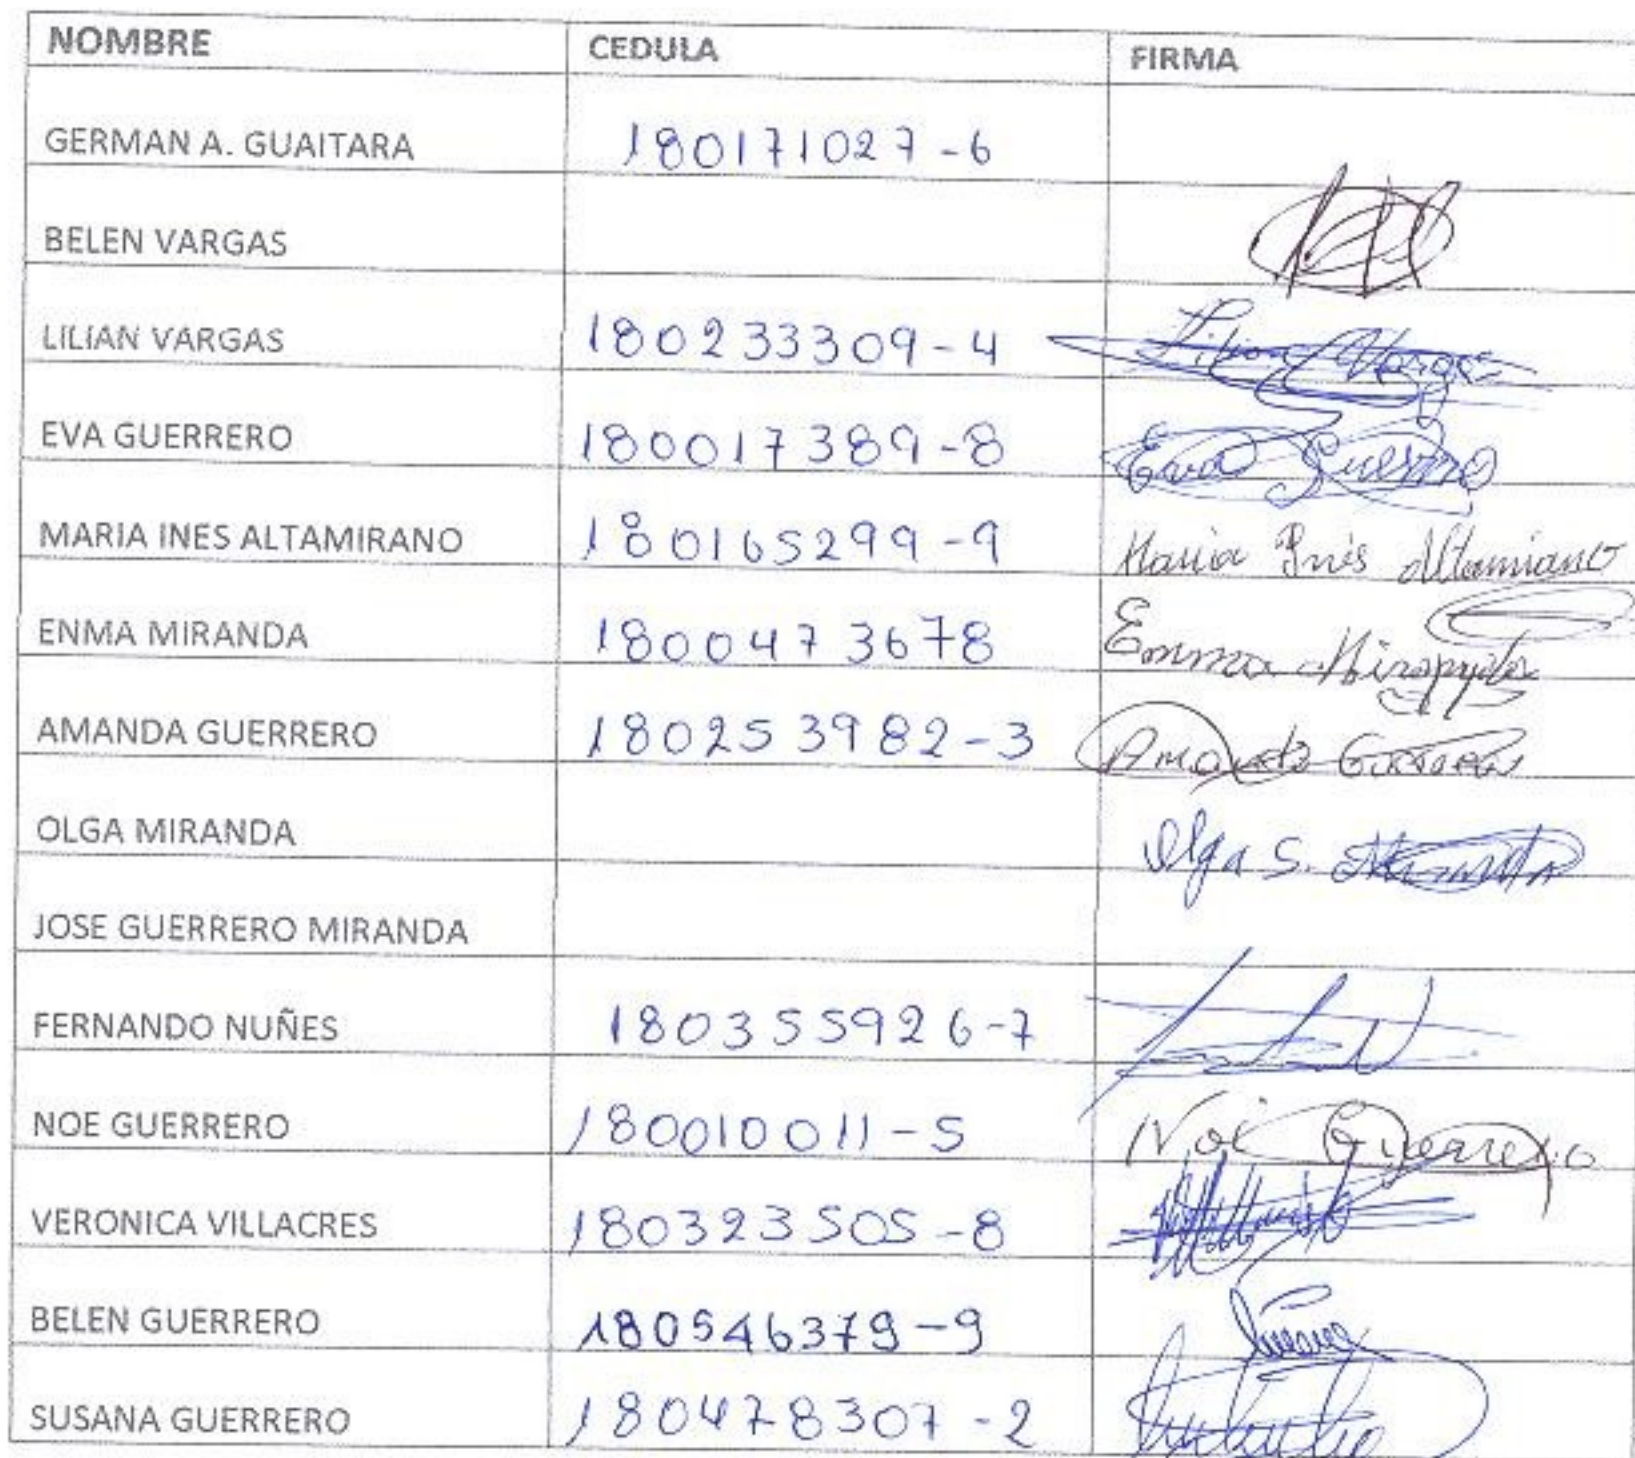 NOMBRE CEDULA FIRMA
GERMAN A. GUAITARA 180171027-6
BELEN VARGAS
LILIAN VARGAS 180233309-4 Lilian Vargas
EVA GUERRERO 180017389-8 Eva Guerrero
MARIA INES ALTAMIRANO 180165299-9 Maria Inés Altamirano
ENMA MIRANDA 1800473678 Emma Miranda
AMANDA GUERRERO 180253982-3 Amanda Guerrero
OLGA MIRANDA Olga S. Miranda
JOSE GUERRERO MIRANDA
FERNANDO NUÑES 180355926-7
NOE GUERRERO 180010011-5 Noé Guerrero
VERONICA VILLACRES 180323505-8
BELEN GUERRERO 180546379-9
SUSANA GUERRERO 180478307-2